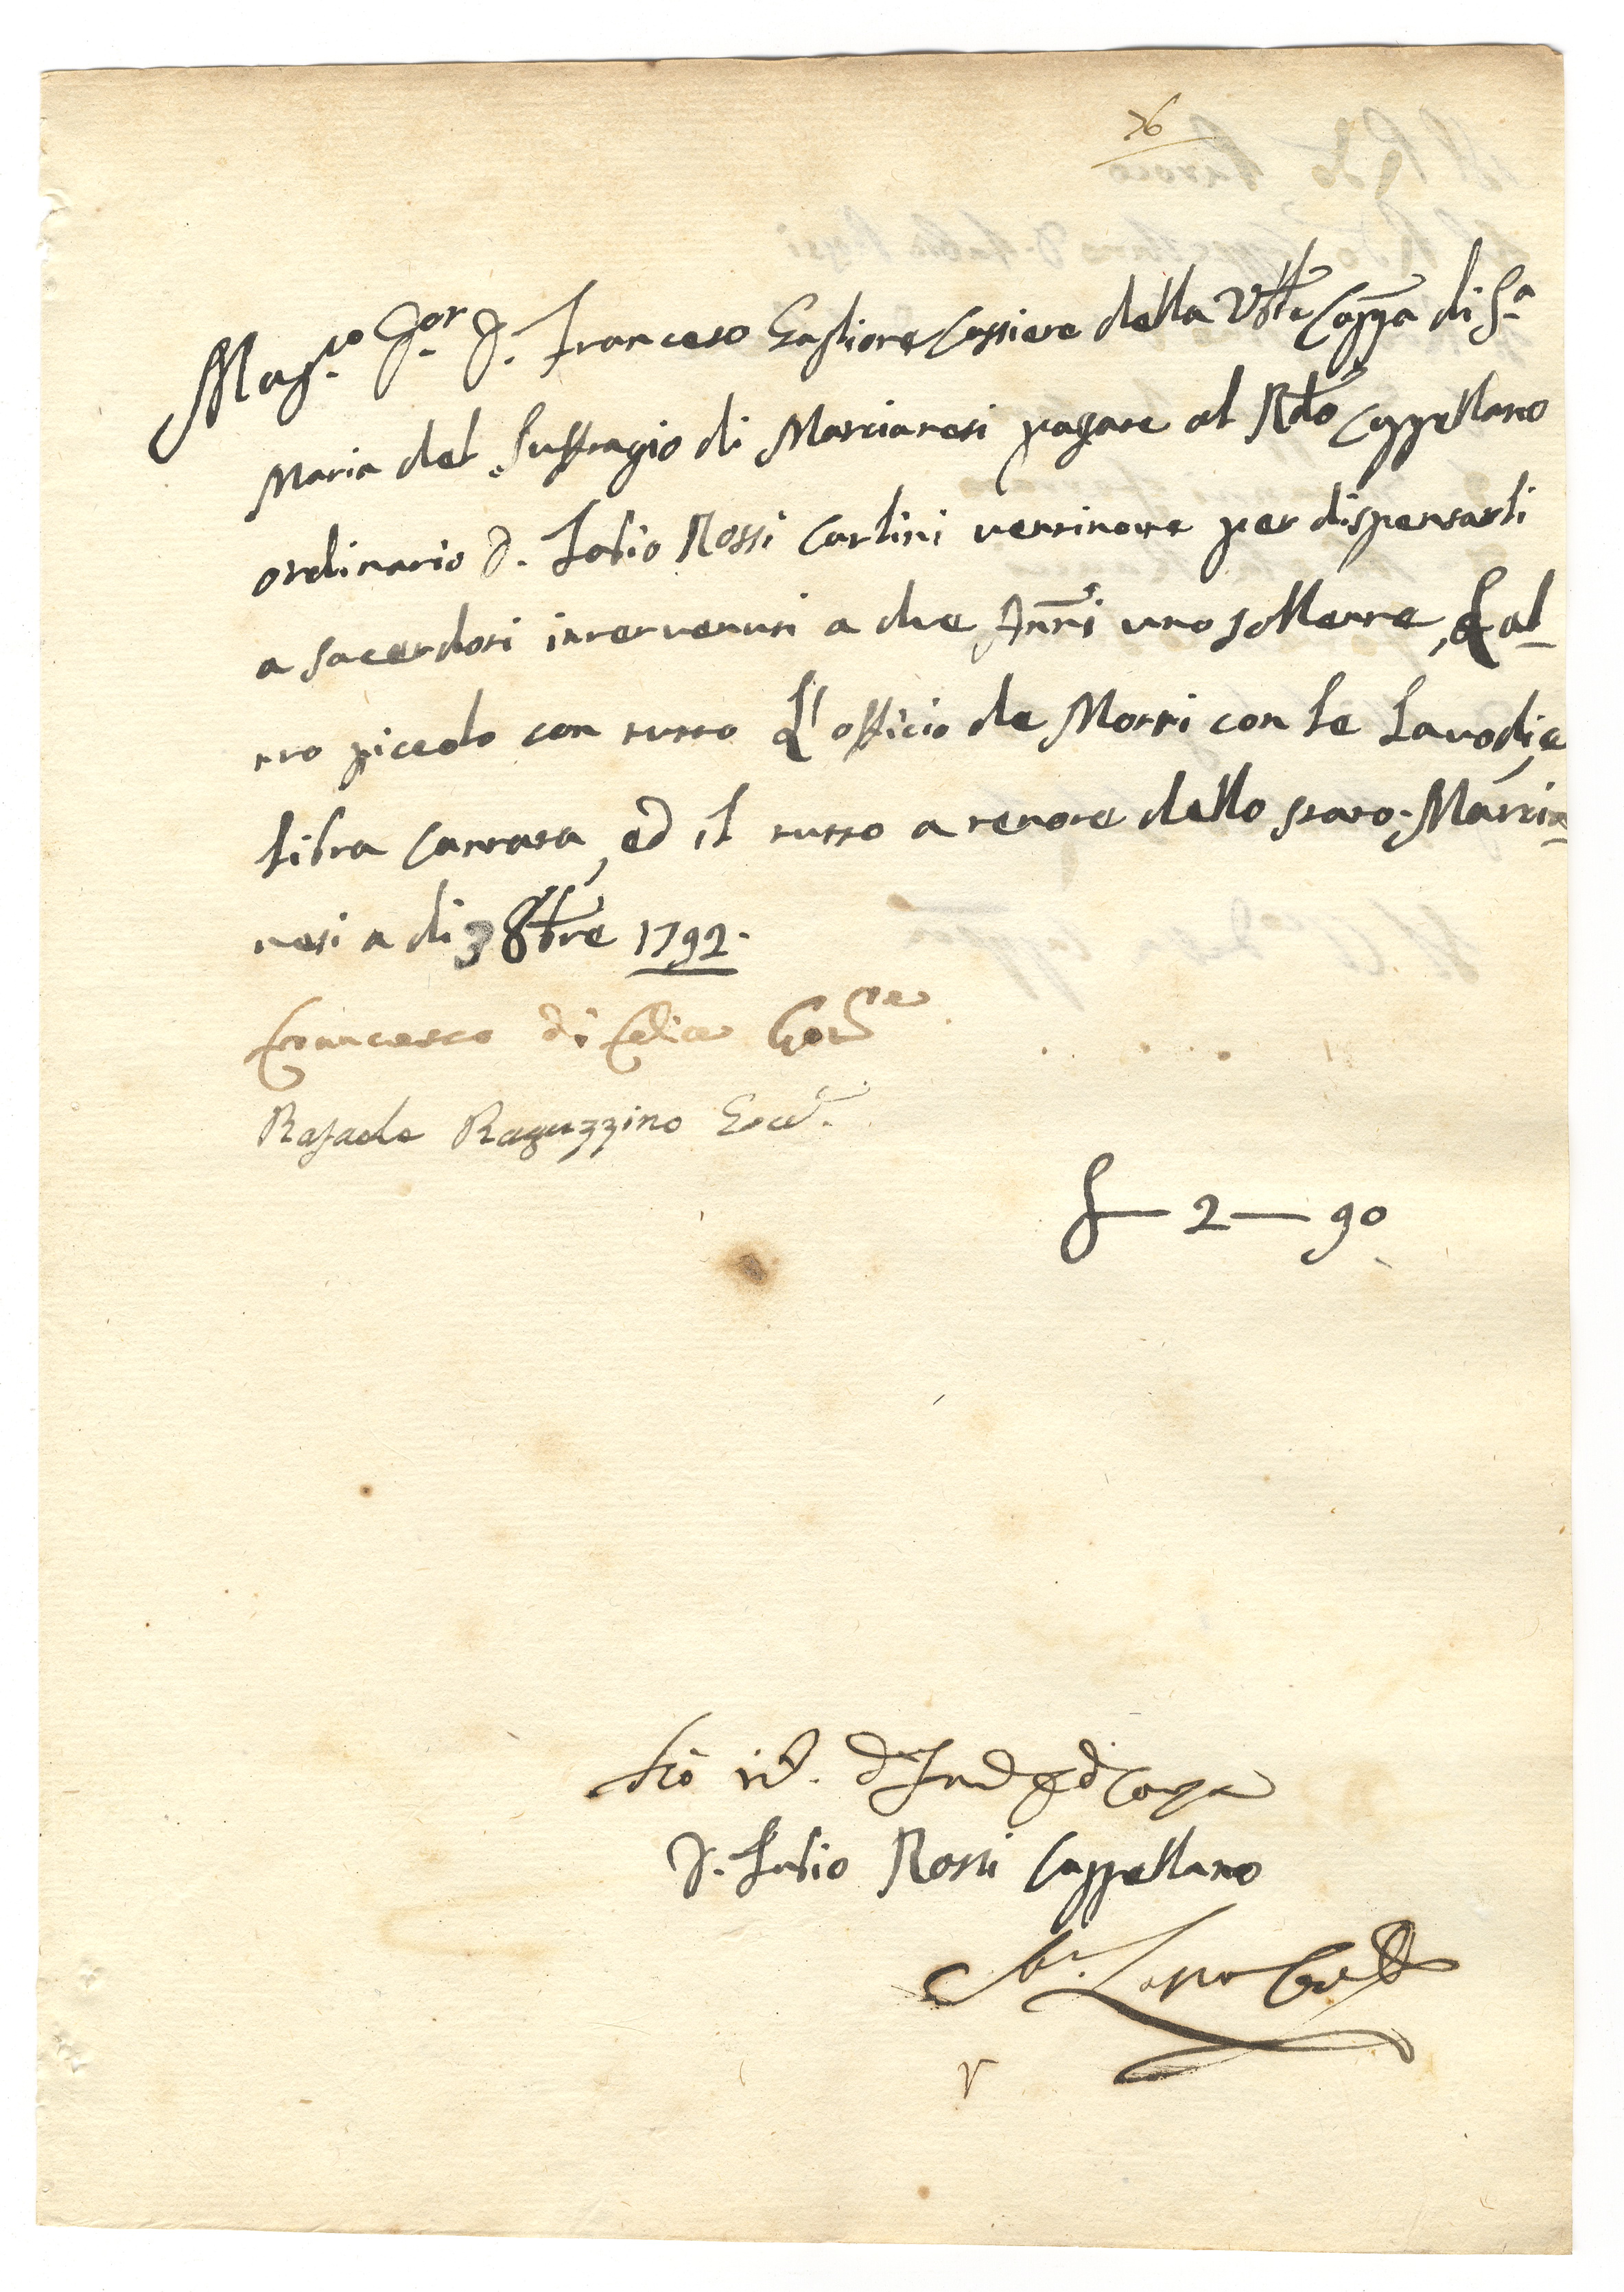 26
Mag.co Sor D. Francesco Gaglione Cassiere della Vble Cappa di Sa
Maria del Suffragio di Marcianesi pagare al Rdo Cappellano
ordinario D. Fabio Rossi Carlini ventinove per dispensarli
a sacerdoti intervenuti a due Annri uno sollenne, & al-
tro piccolo con tutto L'officio de Morti con le Laudi, e
libra cantata, ed il tutto a tenore dello stato. Marcia-
nesi a di 3 8bre 1792.
Francesco di Felice Gove
Rafaele Raguzzino
S— 2 — 90
D. Fabio Rossi Cappellano